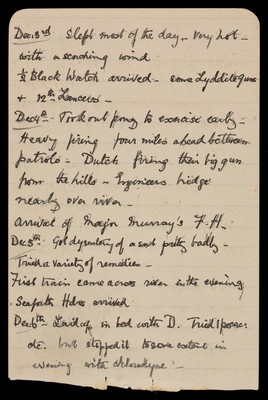 Dec: 3rd - Slept most of the day - very hot -
with a scorching wind
½ Black Watch arrived - some Lyddite guns
+ 12th Lancers -
Dec 4th - Took out pony to exercise early -
Heavy firing four miles ahead between
patrols - Dutch firing their big gun
from the hills - Engineers bridge
nearly over river -
arrival of Major Murray's F.H.
Dec 5th: Got dysentery of a sort pretty badly -
Tried a variety of remedies -
First train came across river in the evening
Seaforth Hdrs arrived
Dec 6th - Laid up in bed with D. Tried Ipecac:
etc. but stopped it to some extent in
evening with chlorodyne! -